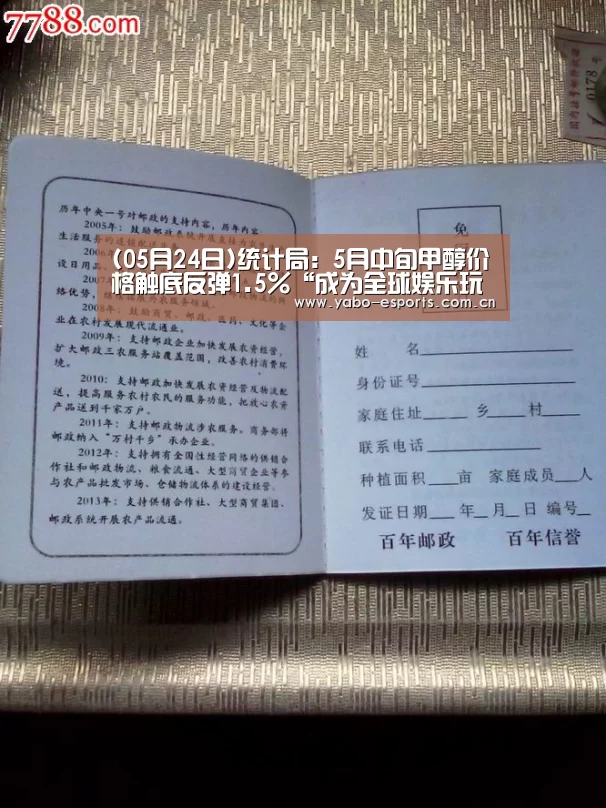 7788.com
0178
历年中央一号对邮政的支持内容，历年内容
2005年：鼓励邮政系统开展
生活服务的连锁
2006
设日用品、
2007
络优势，
2008年：鼓励商贸、邮政、医药、文化等企
业在农村发展现代流通业。
2009年：支持邮政企业加快发展农资经营，
扩大邮政三农服务站覆盖范围，改善农村消费环
境。
2010：支持邮政加快发展农资经营及物流配
送，提高服务农村农民的服务功能，把放心农资
产品送到千家万户。
2011年：支持邮政物流涉农服务。商务部将
邮政纳入“万村千乡”承办企业。
2012年：支持拥有全国性经营网络的供销合
作社和邮政物流、粮食流通、大型商贸企业等参
与农产品批发市场、仓储物流体系的建设经营。
2013年：支持供销合作社、大型商贸集团、
邮政系统开展农产品流通。
(05月24日)统计局：5月中旬甲醇价
格触底反弹1.5% “成为全球娱乐玩
www.yabo-esports.com.cn
免
姓 名
身份证号
家庭住址 乡 村
联系电话
种植面积 亩 家庭成员 人
发证日期 年 月 日 编号
百年邮政 百年信誉